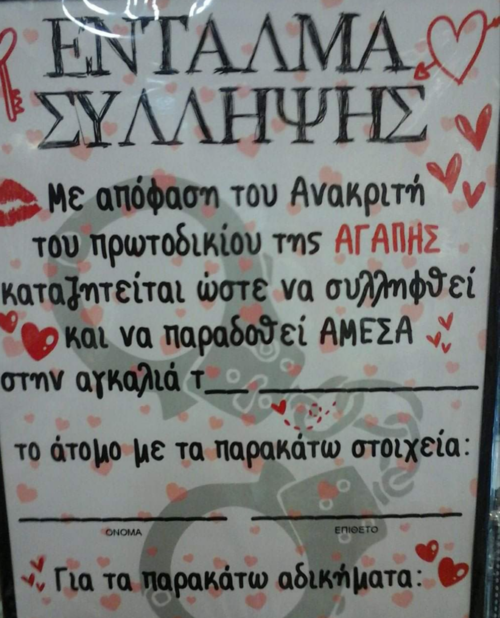 ΕΝΤΑΛΜΑ
ΣΥΛΛΗΨΗΣ
Με απόφαση του Ανακριτή
του πρωτοδικίου της ΑΓΑΠΗΣ
καταζητείται ώστε να συλληφθεί
και να παραδοθεί ΑΜΕΣΑ
στην αγκαλιά τ__ ____________
το άτομο με τα παρακάτω στοιχεία:
ΟΝΟΜΑ ΕΠΙΘΕΤΟ
Για τα παρακάτω αδικήματα: